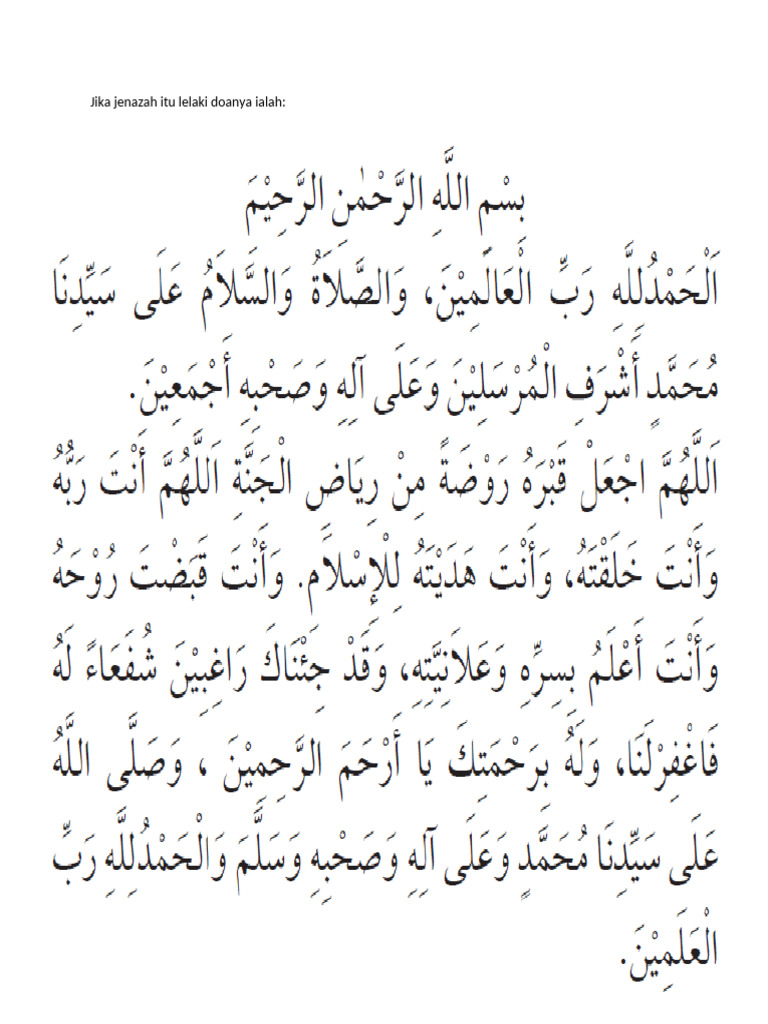 Jika jenazah itu lelaki doanya ialah:
بِسْمِ اللَّهِ الرَّحْمٰنِ الرَّحِيْمَ
اَلْحَمْدُلِلَّهِ رَبِّ الْعَالَمِيْنَ، وَالصَّلَاَةُ وَالسَّلَامُ عَلَى سَيِّدِنَا
مُحَمَّدٍ أَشْرَفِ الْمُرْسَلِيْنَ وَعَلَى آلِهِ وَصَحْبِهِ أَجْمَعِيْنَ.
اَللَّهُمَّ اجْعَلْ قَبْرَهُ رَوْضَةً مِنْ رِيَاضِ الْجَنَّةِ اَللَّهُمَّ أَنْتَ رَبُّهُ
وَأَنْتَ خَلَقْتَهُ، وَأَنْتَ هَدَيْتَهُ لِلْإِسْلَامِ. وَأَنْتَ قَبَضْتَ رُوْحَهُ
وَأَنْتَ أَعْلَمُ بِسِرِّهِ وَعَلاَنِيَّتِهِ، وَقَدْ جِئْنَاكَ رَاغِبِيْنَ شُفَعَاءً لَهُ
فَاغْفِرْلَنَا، وَلَهُ بِرَحْمَتِكَ يَا أَرْحَمَ الرَّحِمِيْنَ ، وَصَلَّى اللَّهُ
عَلَى سَيِّدِنَا مُحَمَّدٍ وَعَلَى آلِهِ وَصَحْبِهِ وَسَلَّمَ وَالْحَمْدُلِلَّهِ رَبِّ
الْعَلَمِيْنَ.